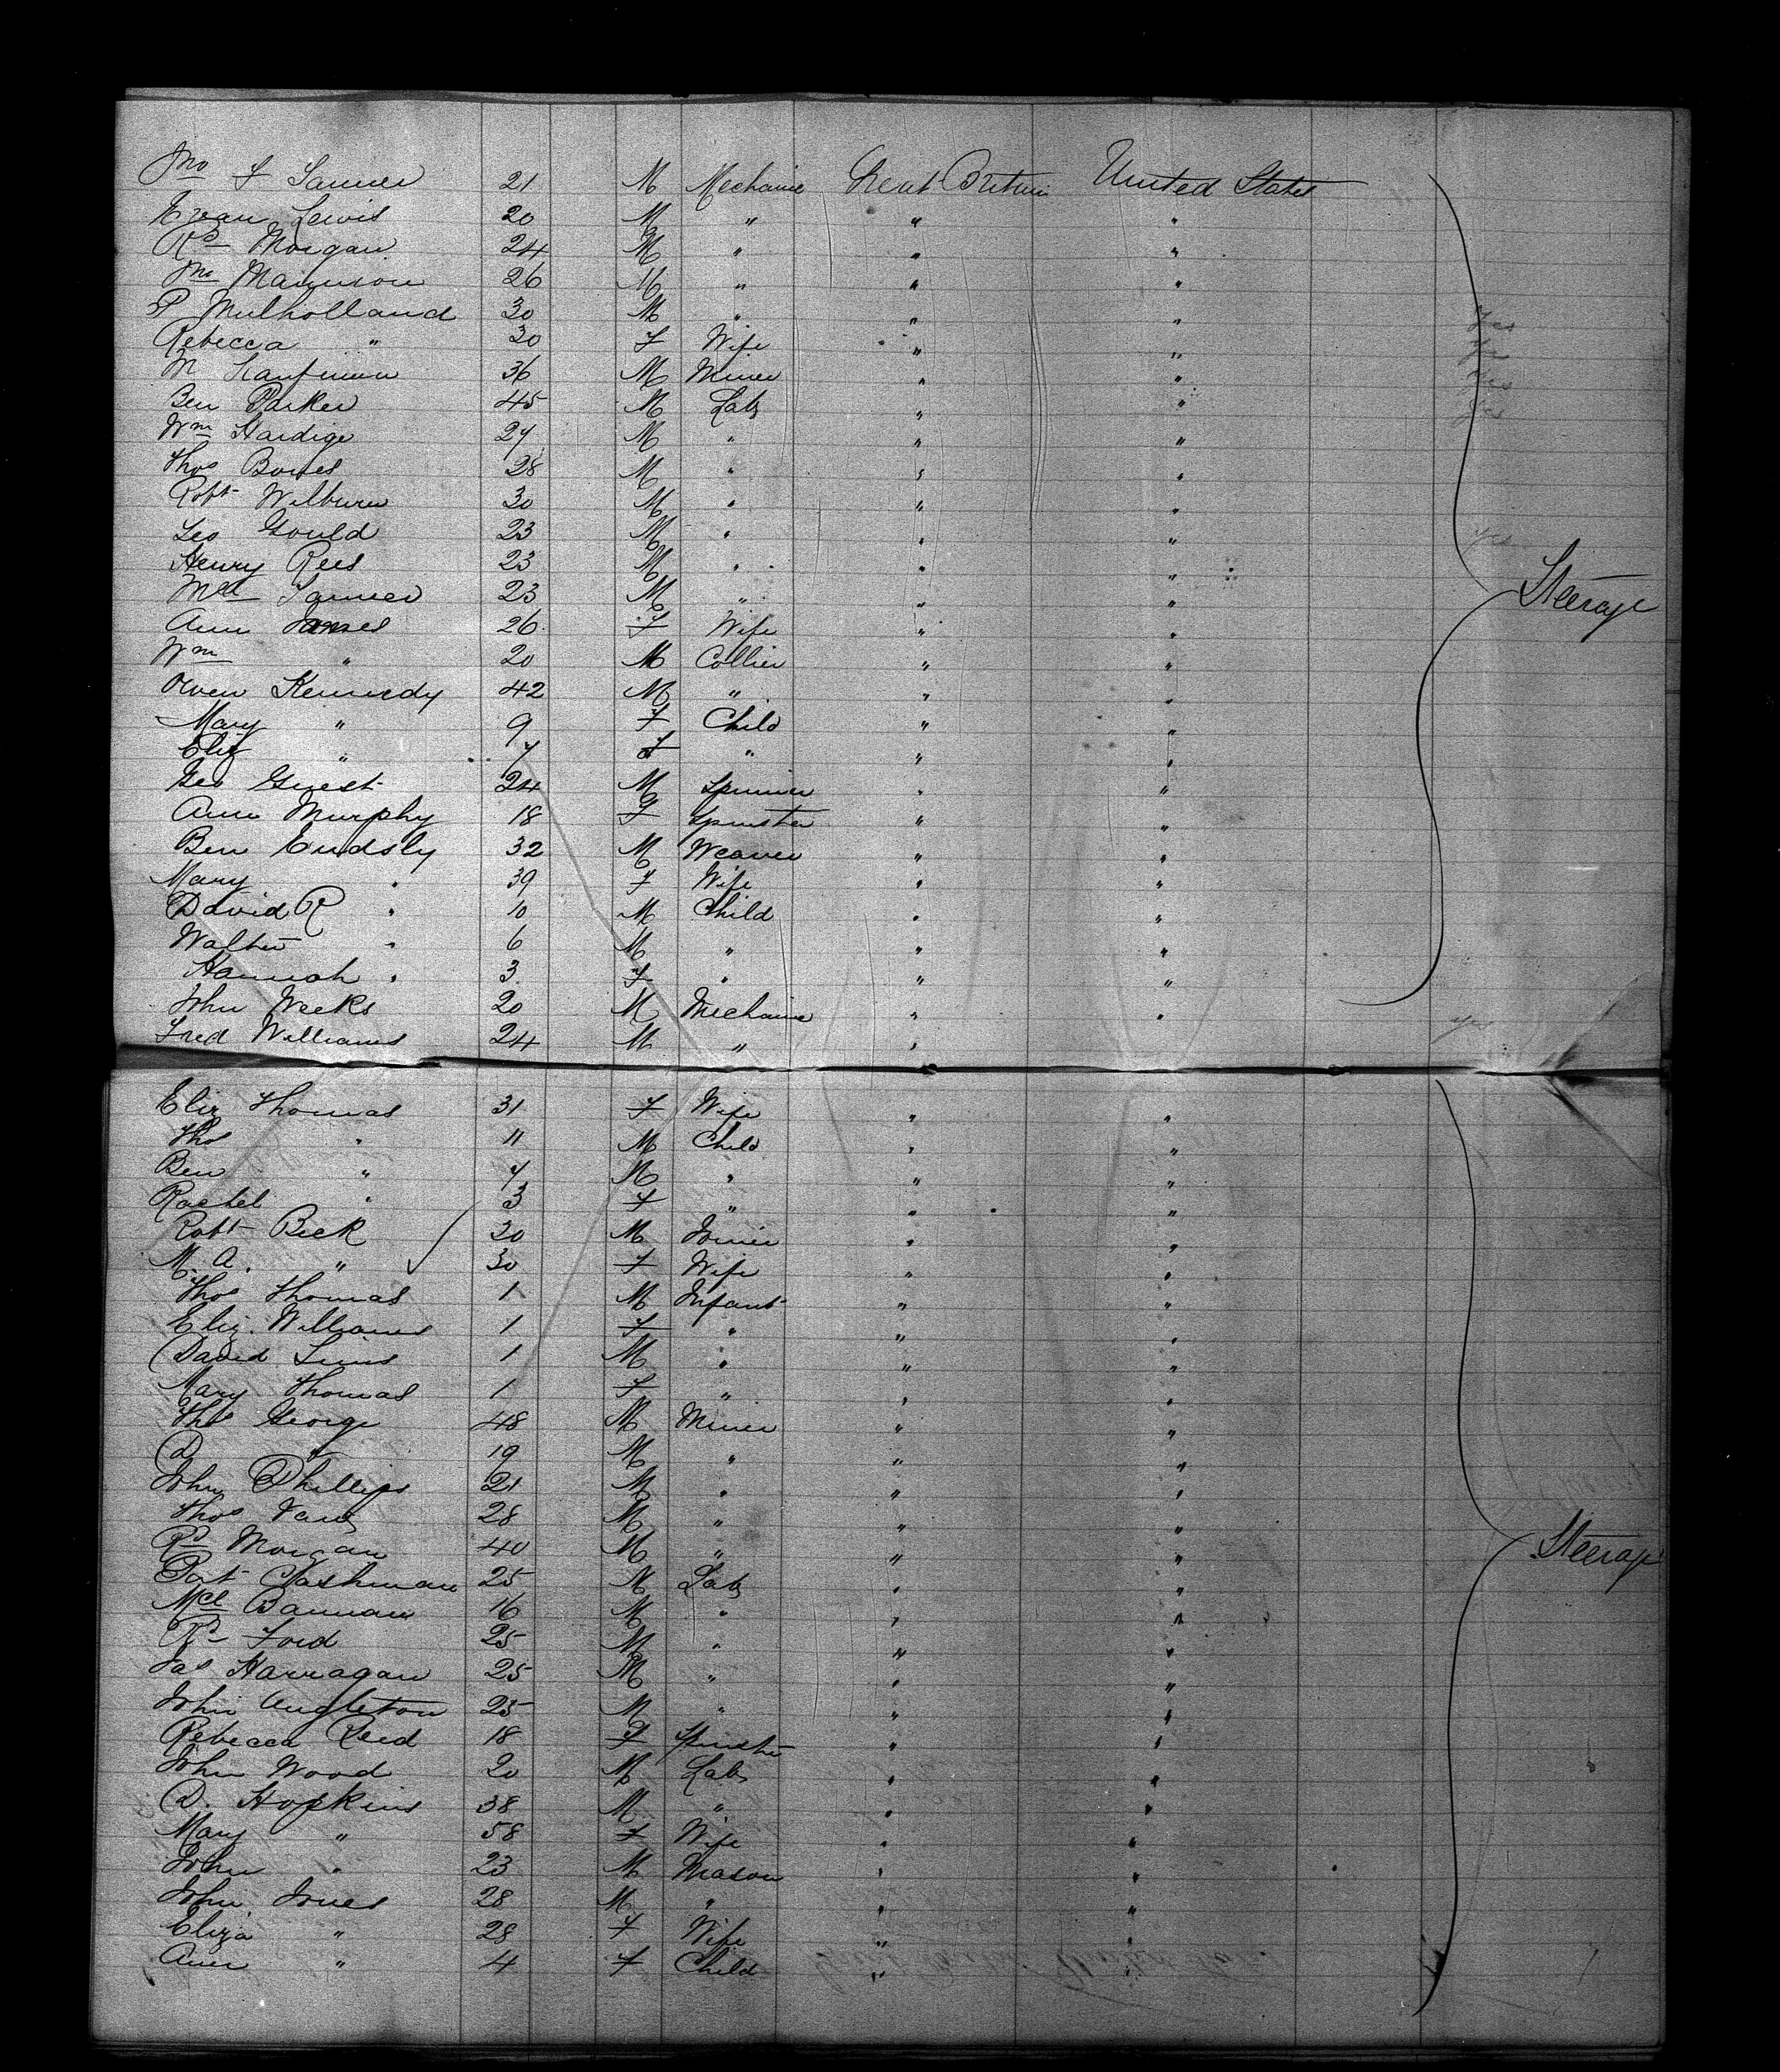 Jno F 21 M Mechanic Great Britain United States
Evan Lewis 20 M " " "
Rd Morgan 24 M " " "
Jno 26 M " " "
P Mulholland 30 M " " "
Rebecca " 30 F Wife " "
M 36 M Miner " "
Ben Parker 45 M Lab " "
Wm Hardige 27 M " " "
Thos 28 M " " "
Robt Wilburn 30 M " " "
Geo Gould 23 M " " "
Henry Rees 23 M " " "
Steerage
Mcl 23 M " " "
Ann James 26 F Wife " "
Wm " 20 M Collier " "
Owen Kennedy 42 M " " "
Mary " 9 F Child " "
Eliz " 7 F " " "
Geo Guest 24 M Spinner " "
Ann Murphy 18 F Spinster " "
Ben Endsly 32 M Weaver " "
Mary " 39 F Wife " "
David R " 10 M Child " "
Walter " 6 M " " "
Hannah " 3 F " " "
John Weeks 20 M Mechanic " "
Fred Williams 24 M " "
Eliz Thomas 31 F Wife " "
Thos " 11 M Child " "
Ben " 7 M " " "
Rachel " 3 F " " "
Robt Beek 30 M Joiner " "
M. A. " 30 F Wife " "
Thos Thomas 1 M Infant " "
Eliz. Williams 1 F " " "
David 1 M " " "
Mary Thomas 1 F " " "
Thos George 48 M Miner " "
D " 19 M " " "
John Phillips 21 M " " "
Thos 28 M " " "
Rd Morgan 40 M " " "
Steerage
Pat 25 M Lab " "
Mcl Bannan 16 M " " "
Rd Ford 25 M " " "
Jas Harragan 25 M " " "
John Angleton 25 M " " "
Rebecca Reed 18 F Spinster " "
John Wood 20 M Lab " "
D. Hopkins 38 M " " "
Mary " 58 F Wife " "
John " 23 M Mason " "
John Jones 28 M " " "
Eliza " 28 F Wife " "
Ann " 4 F Child " "